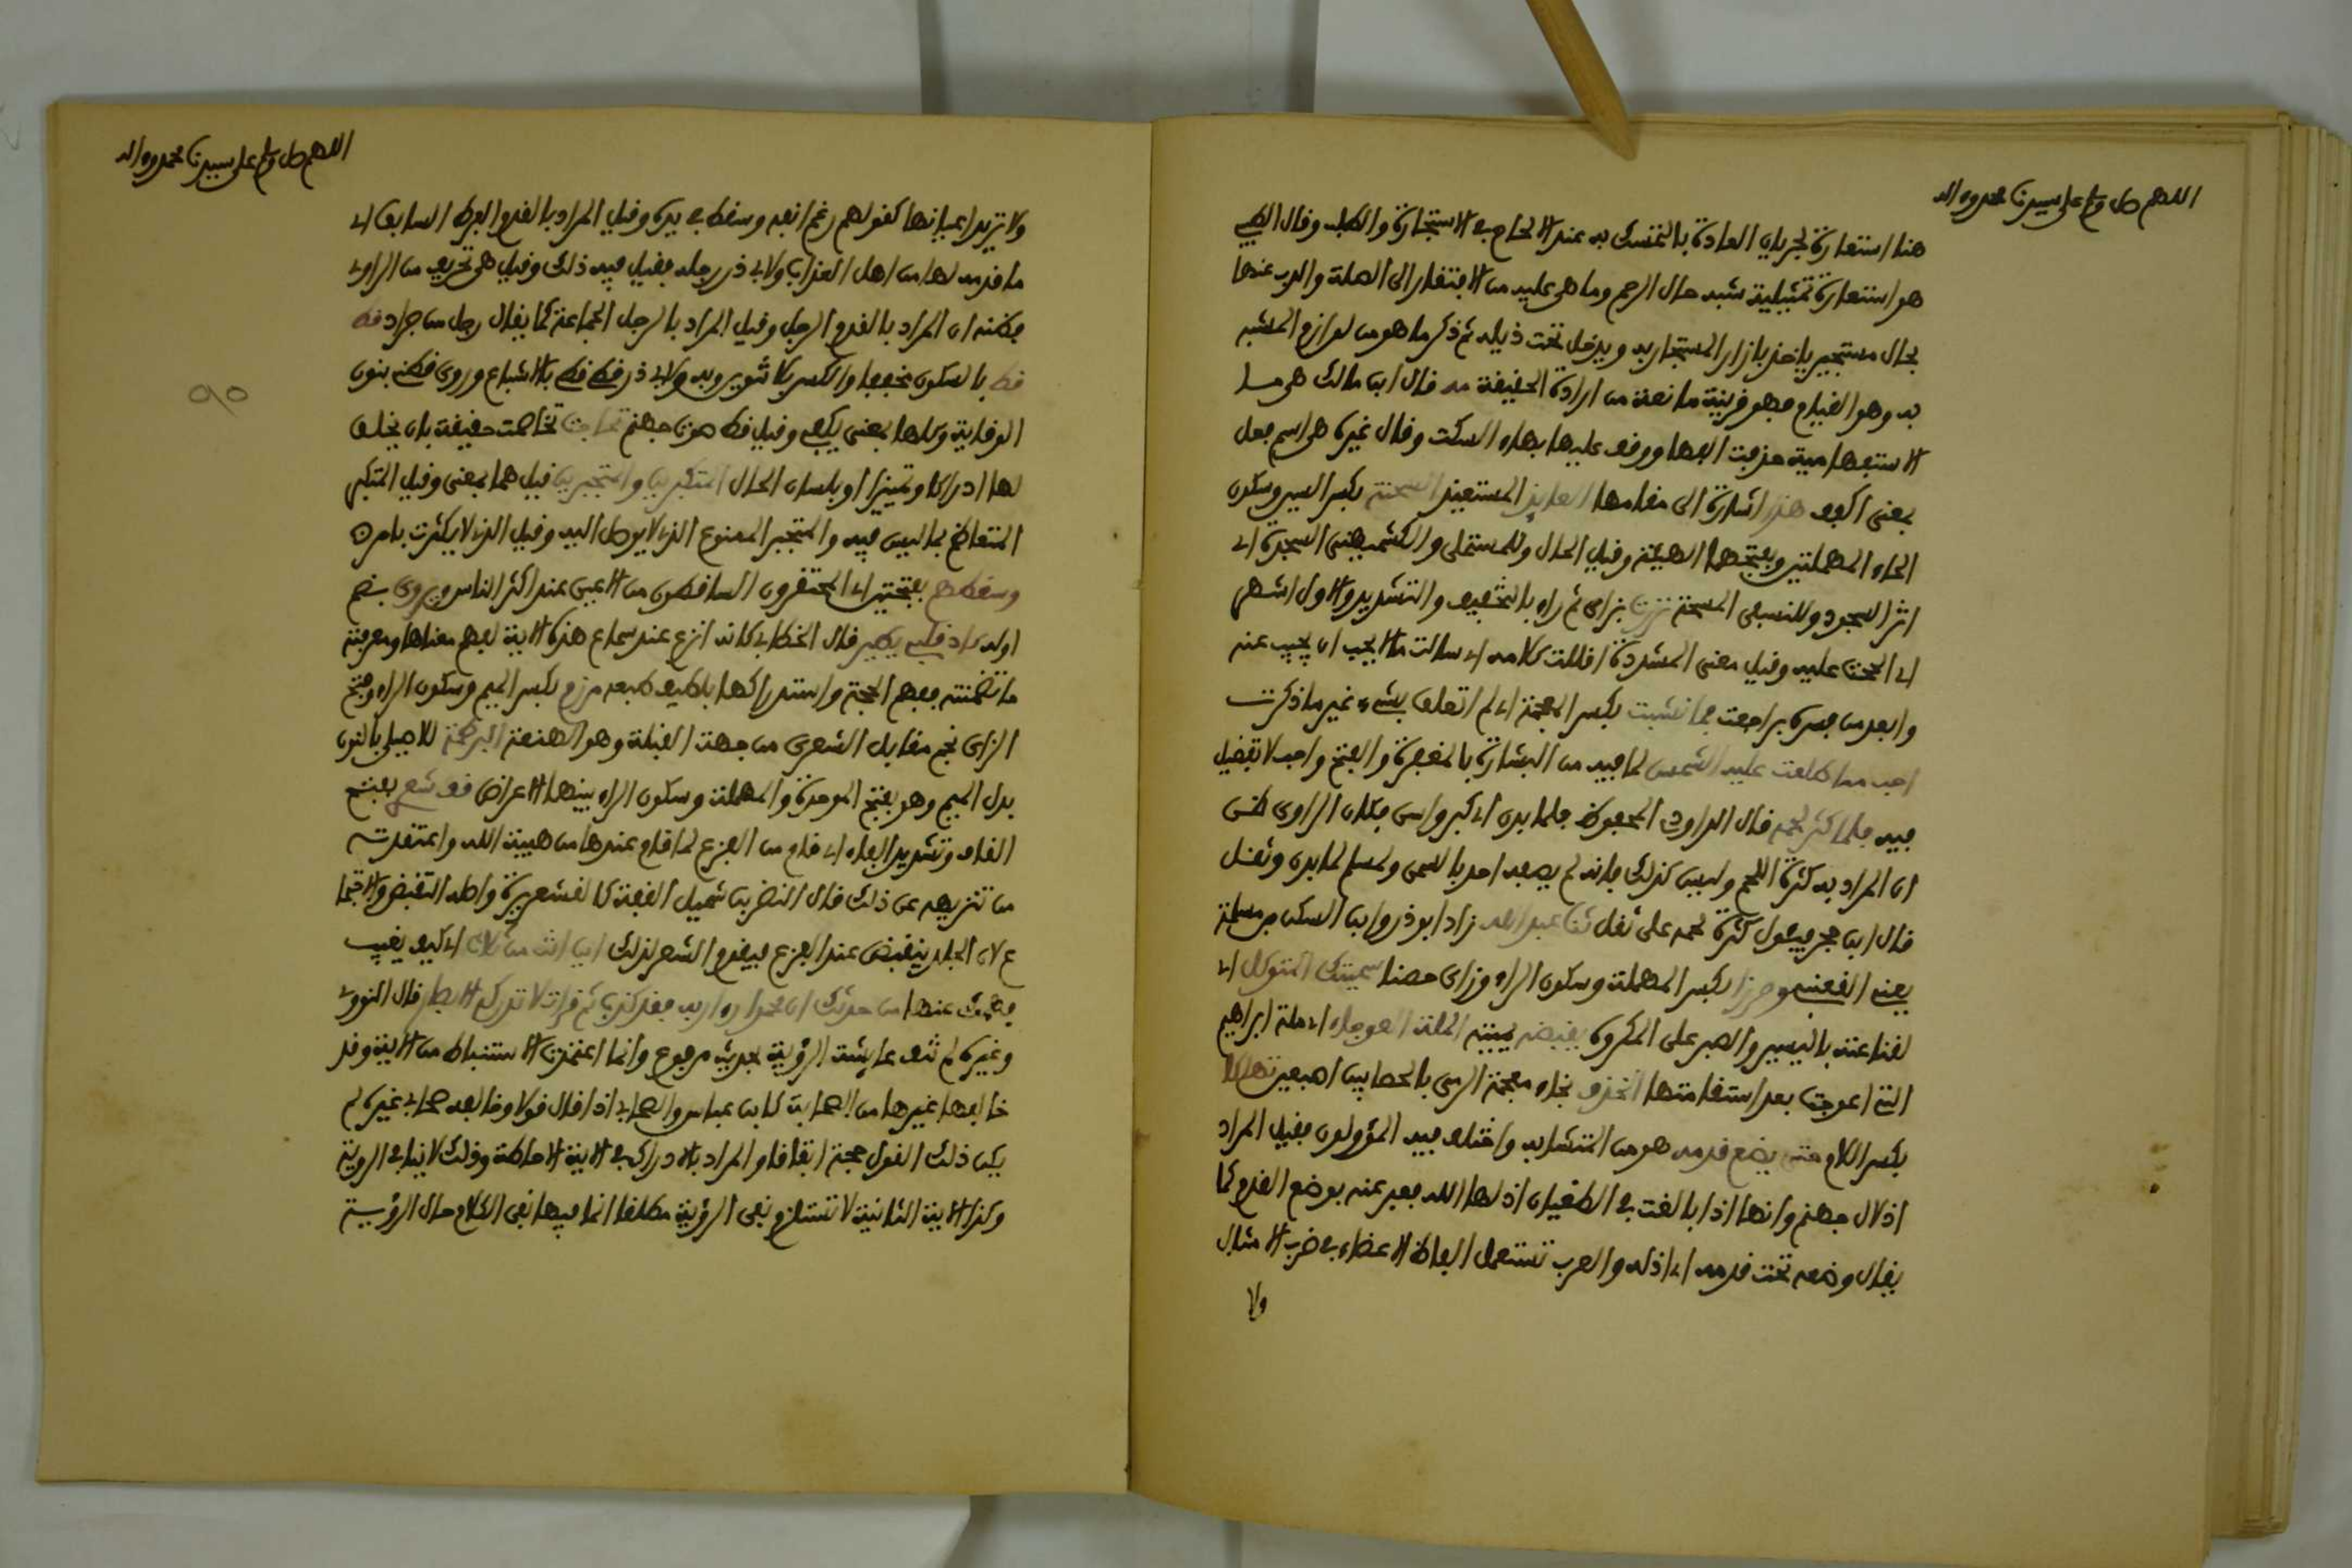 اللهم صل وسلم على سيدنا محمد وءاله
هنا استعارة لجريان العادة بالتمسك به عند الالحاح في الاستجارة والطلب وقال الطيبي
هو استعارة تمثيلية شبه حال الرحم وما هي عليه من الافتقار الى الصلة والذب عنها
بحال مستجير ياخذ بازار المستجار به ويدخل تحت ذيله ثم ذكر ما هو من لوازم المشبه
به وهو القيام فهو قرينة مانعة من ارادة الحقيقة مه قال ابن مالك هي ما
الاستفهامية حذفت الفها ووقف عليها بهاء السكت وقال غيره هي اسم فعل
بمعنى اكفف هذا اشارة الى مقامها العايذ المستعيذ السحنة بكسر السين وسكون
الحاء المهملتين وبفتحهما الهيئة وقيل الحال وللمستملي والكشميهني السجدة اي
اثر السجود وللنسفي المسحة نزرت بزاي ثم راء بالتخفيف والتشديد والاول اشهر
اي الححت عليه وقيل معنى المشددة اقللت كلامه اي سالته ما لا يحب ان يجيب عنه
وابعد من فسره براجعت فما نشبت بكسر المعجمة اي لم اتعلق بشيء غير ما ذكرت
احب مما طلعت عليه الشمس لما فيه من البشارة بالمغفرة والفتح واحب لا تفضيل
فيه فلما كثر لحمه قال الداودي المحفوظ فلما بدن اي كبر واسن فكان الراوي ظن
ان المراد به كثرة اللحم وليس كذلك فانه لم يصفه احد بالسمن ولمسلم لما بدن وثقل
قال ابن حجر فيتاول كثرة لحمه على ثقل ثنا عبد الله زاد ابو ذر وابن السكن بن مسلمة
يعني القعنبي وحرزا بكسر المهملة وسكون الراء وزاي حصنا سميتك المتوكل اي
لقناعته باليسير والصبر على المكروه يقبضه يميته الملة العوجاء اي ملة ابراهيم
التي اعوجت بعد استقامتها الخذف بخاء معجمة الرمي بالحصا بين اصبعين
بكسر اللام حتى يضع قدمه هو من المتشابه واختلف فيه المؤولون فقيل المراد
اذلال جهنم وانها اذا بالغت في الطغيان اذلها الله فعبر عنه بوضع القدم كما
يقال وضعه تحت قدمه اي اذله والعرب تستعمل الفاظ الاعضاء في ضرب الامثال
ولا
اللهم صل وسلم على سيدنا محمد وءاله
ولا تريد اعيانها كقولهم رغم انفه وسقط في يده وقيل المراد بالقدم الفرط السابق اي
ما قدمه لها من اهل العذاب ولابي ذر رجله فقيل فيه ذلك وقيل هي تحريف من الراوي
فظنه ان المراد بالقدم الرجل وقيل المراد بالرجل الجماعة كما يقال رجل من جراد قط
قط بالسكون مخففا والكسر بلا تنوين وبه ولابي ذر قطي قطي بالاشباع وروي قطني بنون
الوقاية وكلها بمعنى يكفي وقيل قط صوت جهنم تحاجت تخاصمت حقيقة بان يخلق
لها ادراكا وتمييزا او بلسان الحال المتكبرين والمتجبرين قيل هما بمعنى وقيل المتكبر
المتعاظم بما ليس فيه والمتجبر الممنوع الذي لا يوصل اليه وقيل الذي لا يكترث بامر
وسقطهم بفتحتين اي المحتقرون الساقطون من الاعين عند اكثر الناس ويروى بضم
اوله كاد قلبي يطير قال الخطابي كانه انزعج عند سماع هذه الاية لفهم معناها ومعرفته
ما تضمنته ففهم الحجة واستدركها بلطيف طبعه مرزم بكسر الميم وسكون الراء وفتح
الزاي نجم مقابل الشعرى من جهة القبلة وهو الهنعة البرطمة للاصيلي بالنون
بدل الميم وهو بفتح الموحدة والمهملة وسكون الراء بينهما الاعراض قف شعري بفتح
القاف وتشديد الفاء اي قام من الفزع لما قام عندها من هيبة الله واعتقدته
من تنزيهه عن ذلك قال النضر بن شميل القفة كالقشعريرة واصله التقبض والاجتما
ع لان الجلد ينقبض عند الفزع فيقوم الشعر لذلك اين انت من ثلاث اي كيف يغيب
فهمك عنها من حدثك ان محمدا راى ربه فقد كذب ثم قرات لا تدركه الابصار قال النووي
وغيره لم تنف عايشة الرؤية بحديث مرفوع وانما اعتمدت الاستنباط من الاية وقد
خالفها غيرها من الصحابة كابن عباس والصحابي اذا قال قولا وخالفه صحابي غيره لم
يكن ذلك القول حجة اتفاقا والمراد بالادراك في الاية الاحاطة وذلك لا ينافي الروية
وكذا الاية الثانية لا تستلزم نفي الرؤية مطلقا انما فيها نفي الكلام حال الرؤية